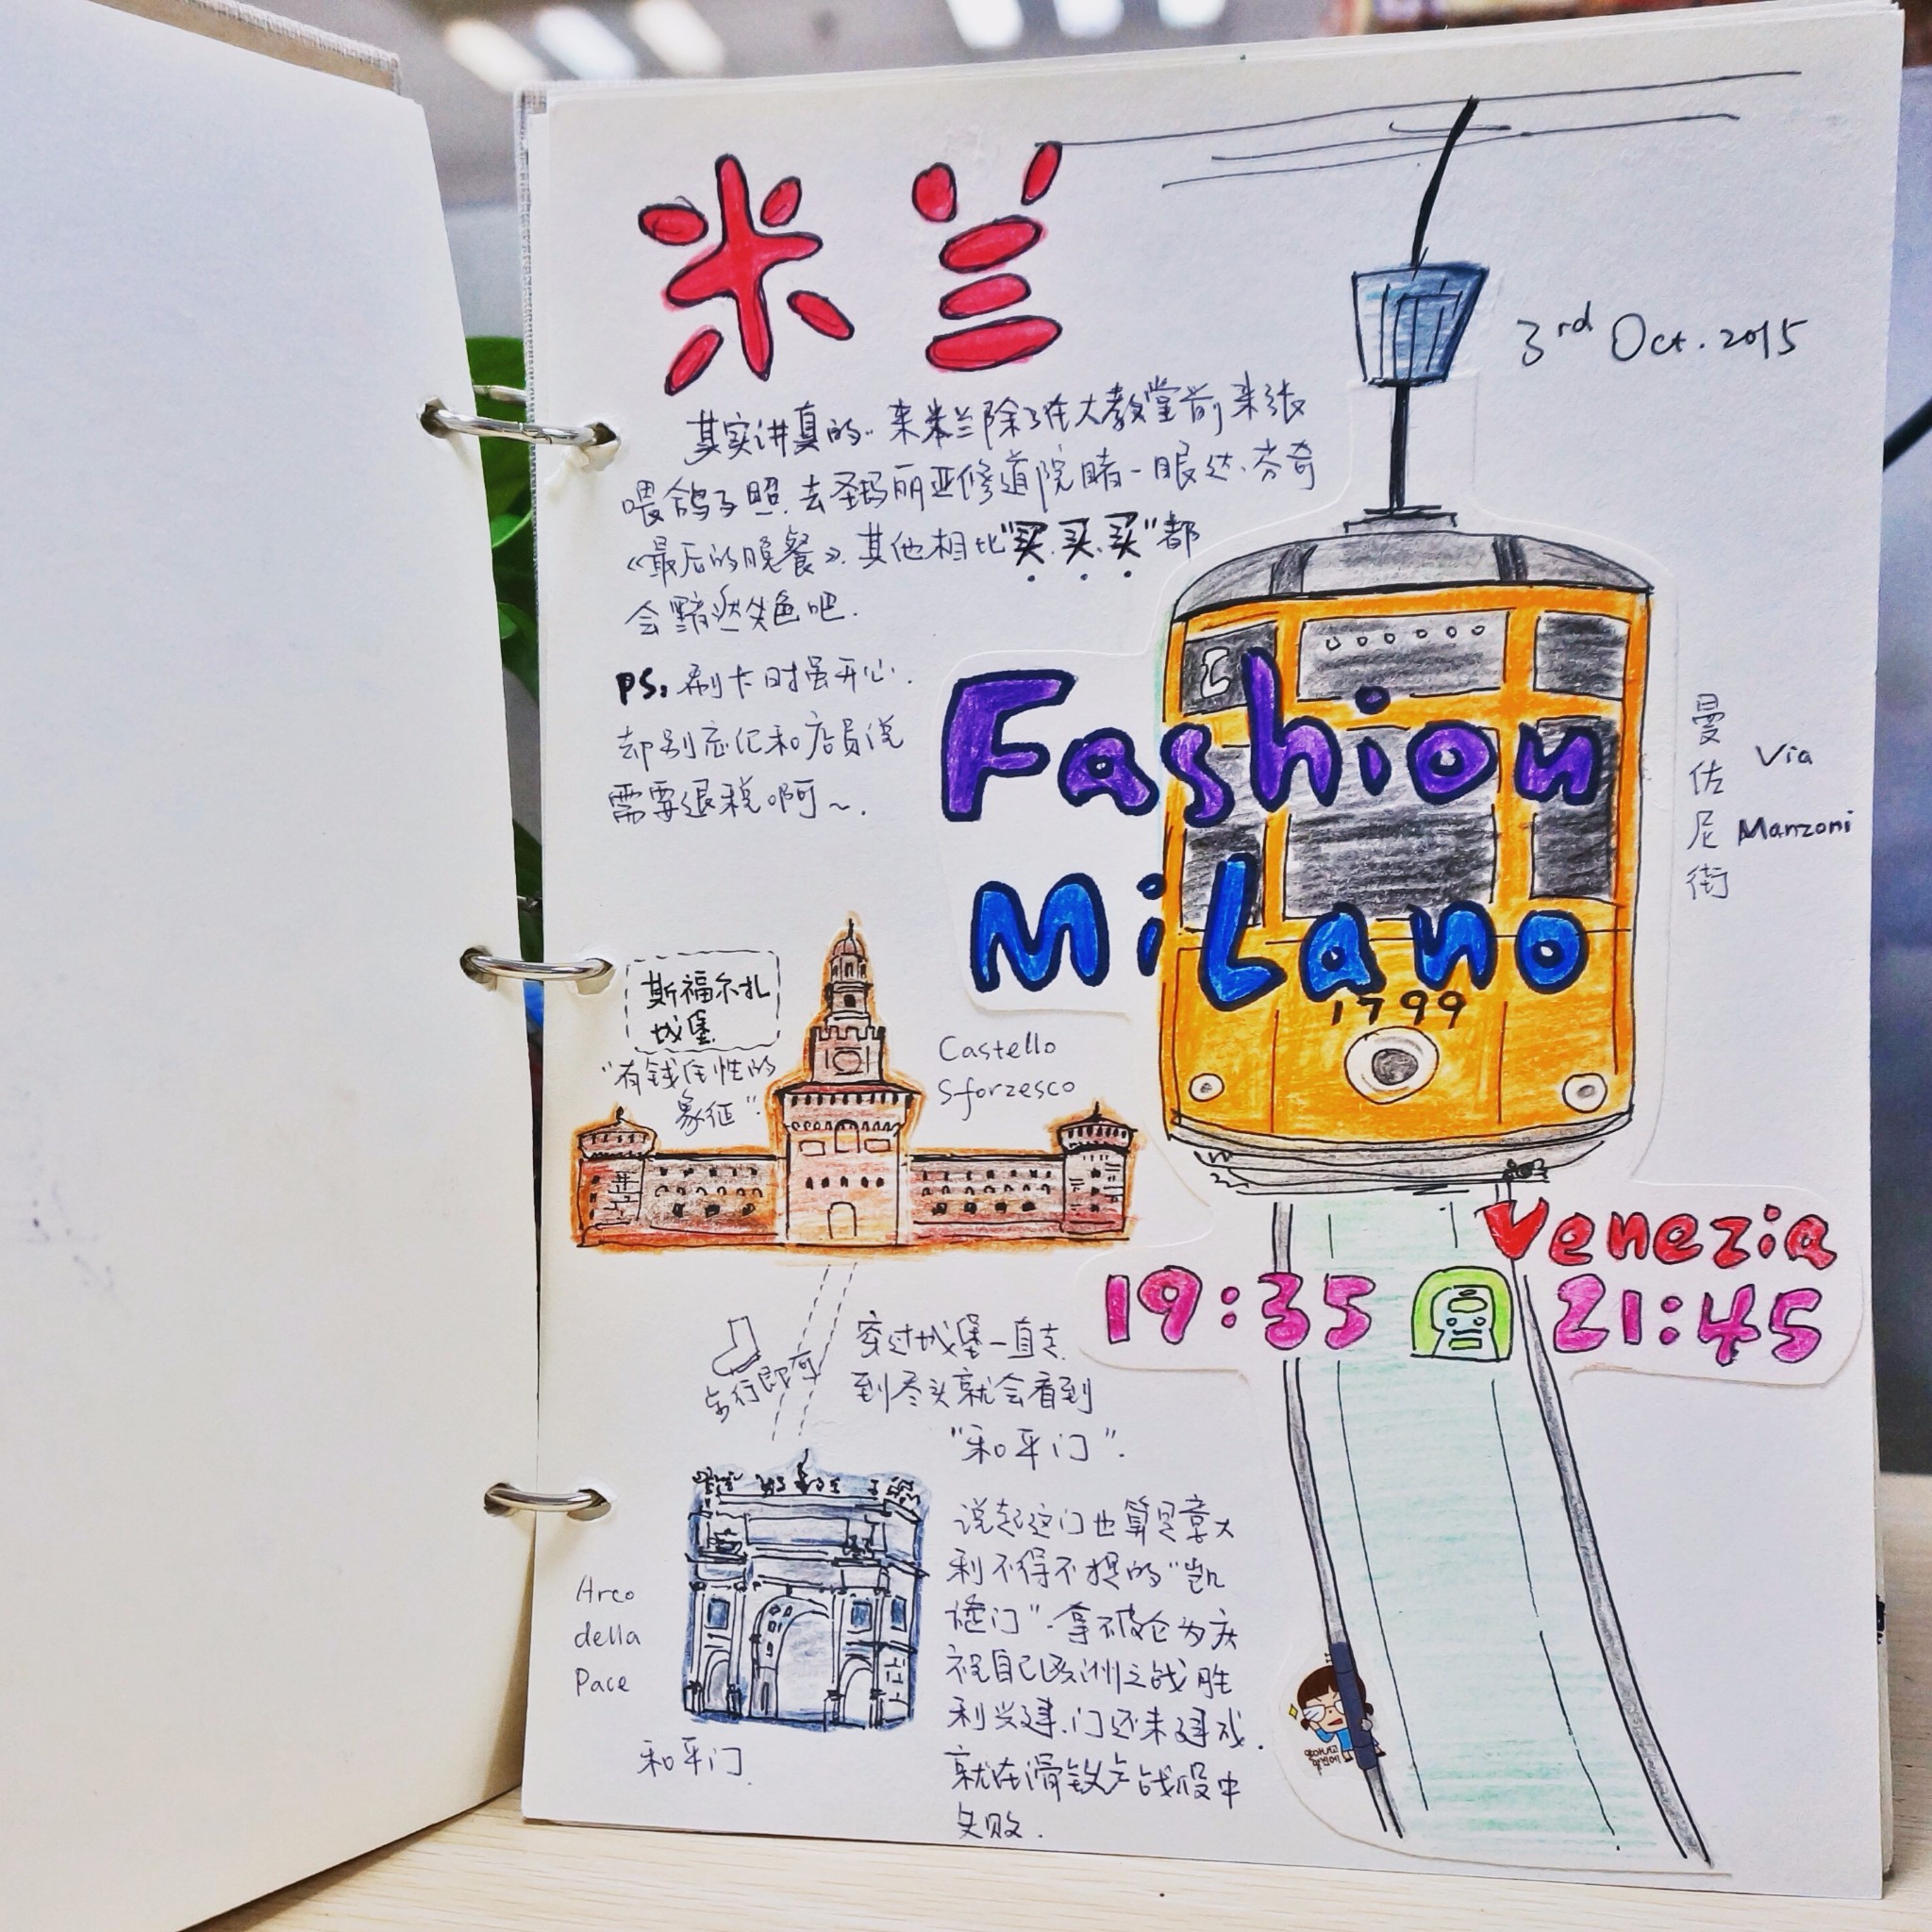 米兰
3rd Oct. 2015
其实讲真的..来米兰除了在大教堂前来张
喂鸽子照.去圣玛丽亚修道院睹一眼达·芬奇
《最后的晚餐》.其他相比"买.买.买"都
会黯然失色吧.
PS. 刷卡时虽开心.
却别忘记和店员说
需要退税啊~.
Fashion
MiLano
1799
曼佐尼街
Via
Manzoni
斯福尔扎
城堡
"有钱任性的
象征".
Castello
Sforzesco
Venezia
19:35
21:45
步行即可
穿过城堡一直走
到尽头就会看到
"和平门".
说起这门也算是意大
利不得不提的"凯
旋门".拿破仑为庆
祝自己欧洲之战胜
利兴建.门还未建成.
就在滑铁卢战役中
失败.
Arco
della
Pace
和平门.